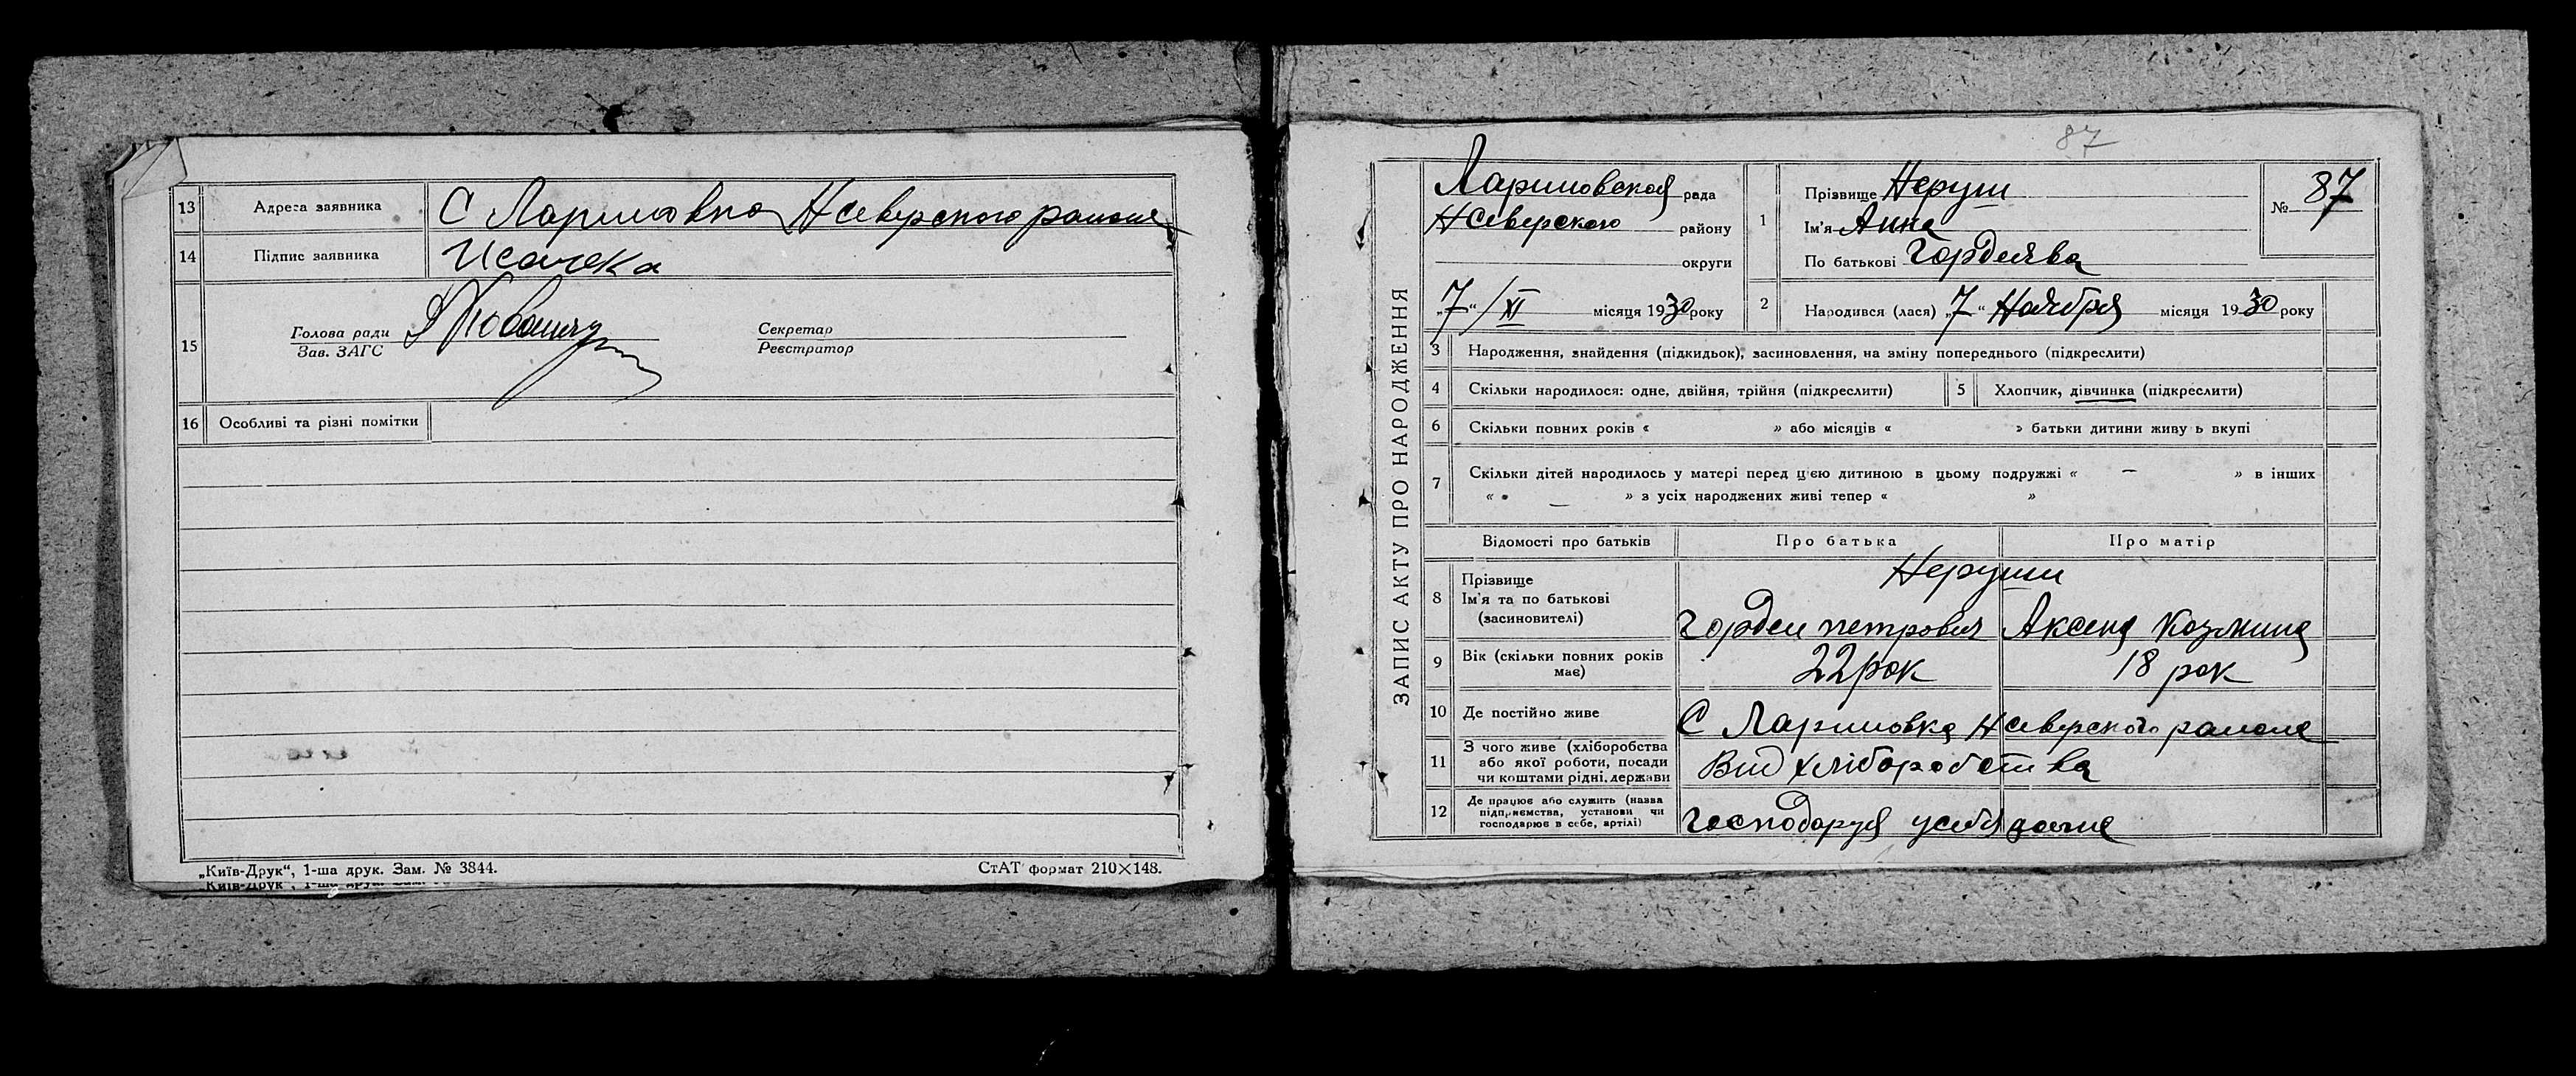 13 Адреса заявника С Лариновка НСеверского района
14 Підпис заявника
15 Голова ради
Зав. ЗАГС
Секретар
Реєстратор
16 Особливі та різні помітки
„Київ-Друк“, 1-ша друк. Зам. № 3844.
СтАТ формат 210×148.
87
ЗАПИС АКТУ ПРО НАРОДЖЕННЯ
Лариновская рада
НСеверского району
округи
„7“/XI місяця 1930 року
1 Прізвище Неруш
Ім'я Анна
По батькові Гордеява
№ 87
2 Народився (лася) „7“ Наября місяця 1930 року
3 Народження, знайдення (підкидьок), засиновлення, на зміну попереднього (підкреслити)
4 Скільки народилося: одне, двійня, трійня (підкреслити)
5 Хлопчик, дівчинка (підкреслити)
6 Скільки повних років « » або місяців « » батьки дитини живу ь вкупі
7 Скільки дітей народилось у матері перед цією дитиною в цьому подружжі « — » в інших
« — » з усіх народжених живі тепер « »
Відомості про батьків Про батька Про матір
8 Прізвище
Ім'я та по батькові
(засиновителі)
Неруши
Гордеи петрович Аксеня Козмина
9 Вік (скільки повних років
має)
22 рок 18 рок
10 Де постійно живе С Лариновка НСеверского района
11 З чого живе (хліборобства
або якої роботи, посади
чи коштами рідні, держави
Вид хліборобства
12 Де працює або служить (назва
підприємства, установи чи
господарює в себе, артілі)
Господаруя усебя